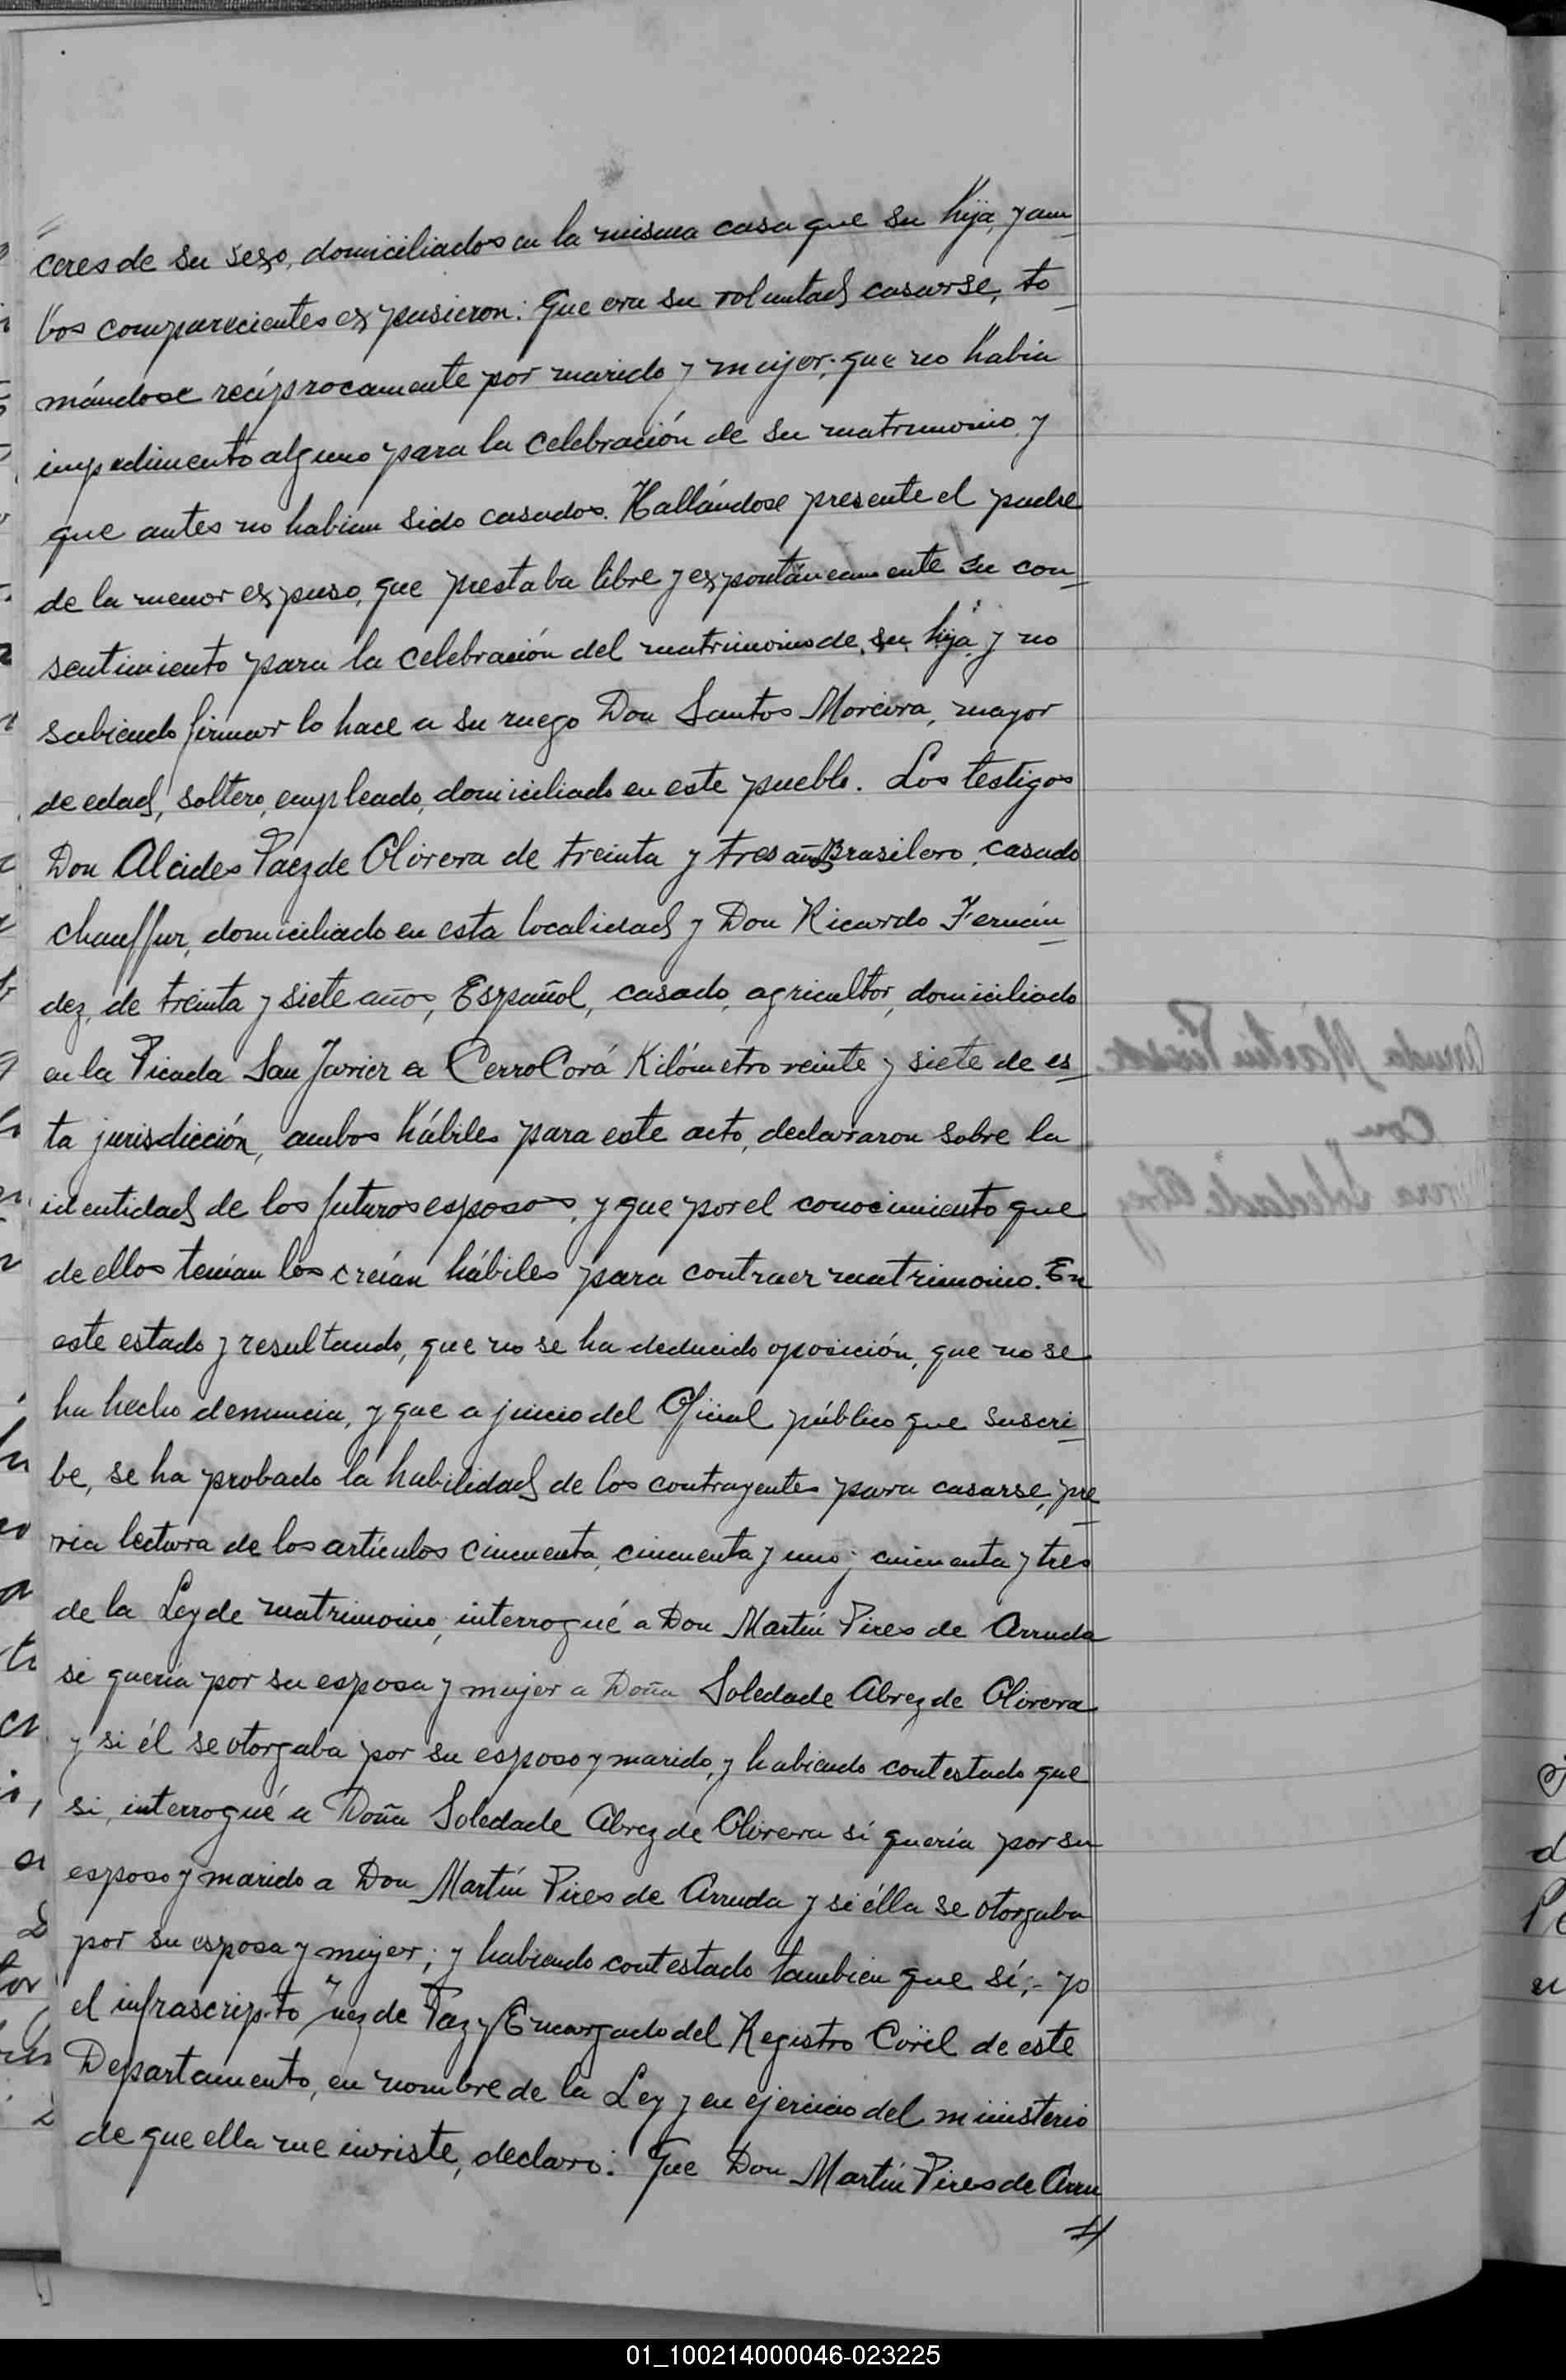 "
ceres de su sexo, domiciliados en la misma casa que su hija, y am_
bos comparecientes expusieron: Que era su voluntad casarse, to_
mándose recíprocamente por marido y mujer; que no había
impedimento alguno para la celebración de su matrimonio y
que antes no habían sido casados. Hallándose presente el padre
de la menor expuso, que prestaba libre y expontáneamente su con_
sentimiento para la celebración del matrimonio de su hija y no
sabiendo firmar lo hace a su ruego Don Santos Moreira, mayor
de edad, soltero, empleado, domiciliado en este pueblo. Los testigos
Don Alcides Paez de Olivera de treinta y tres años Brasilero, casado
chauffur, domiciliado en esta localidad y Don Ricardo Fernán_
dez, de treinta y siete años, Español, casado, agricultor, domiciliado
en la Picada San Javier a Cerro Corá Kilómetro veinte y siete de es_
ta jurisdicción, ambos hábiles para este acto, declararon sobre la
identidad de los futuros esposos, y que por el conocimiento que
de ellos tenían los creían hábiles para contraer matrimonio. En
este estado y resultando, que no se ha deducido oposición, que no se
ha hecho denuncia, y que a juicio del Oficial público que suscri_
be, se ha probado la habilidad de los contrayentes para casarse, pre_
via lectura de los artículos cincuenta, cincuenta y uno; cincuenta y tres
de la Ley de matrimonio, interrogué a Don Martín Pires de Arruda
si quería por su esposa y mujer a Doña Soledade Abrez de Olivera
y si él se otorgaba por su esposo y marido, y habiendo contestado que
si, interrogué a Doña Soledade Abrez de Olivera si quería por su
esposo y marido a Don Martín Pires de Arruda y si élla se otorgaba
por su esposa y mujer; y habiendo contestado tambien que sí;- yo
el infrascripto Juez de Paz y Encargado del Registro Civil de este
Departamento, en nombre de la Ley y en ejercicio del ministerio
de que ella me inviste, declaro: Que Don Martín Pires de Arru
//
01_100214000046-023225